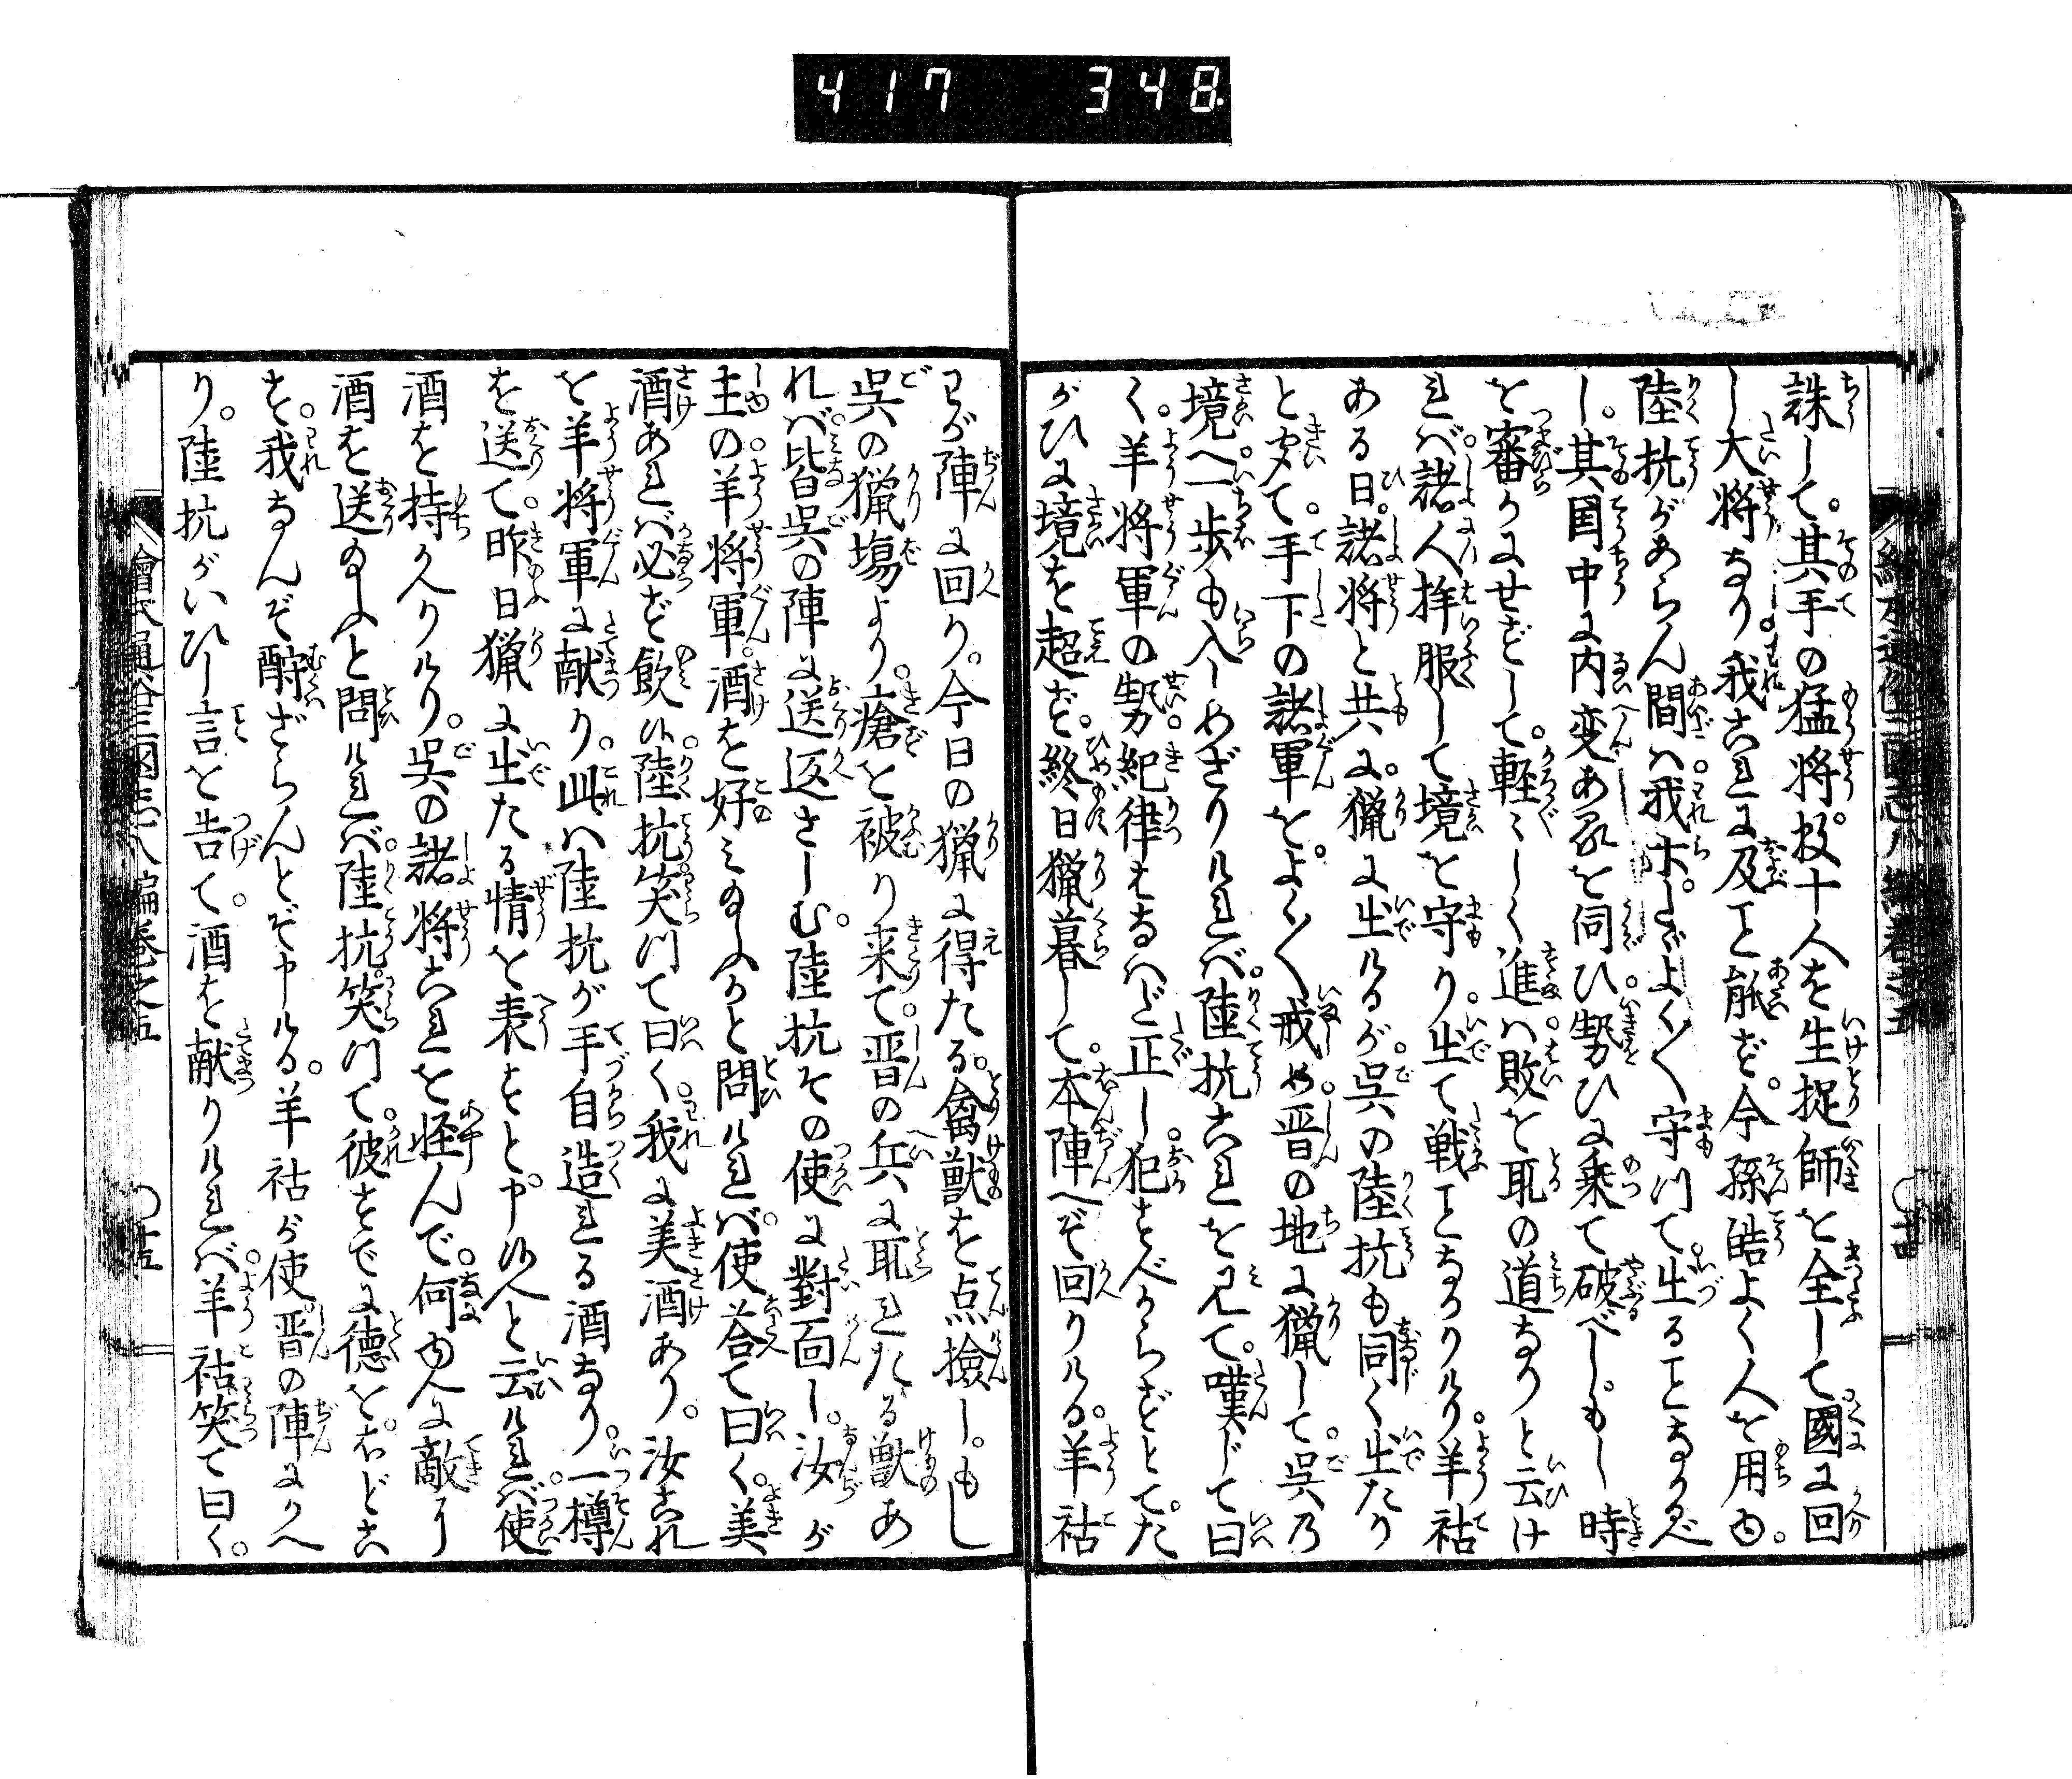 417 348
誅して。其手の猛将。数十人を生捉師を全して。國に回
し大将なり。我これに及ヿ能ず。今孫皓よく人を用ゆ。
陸抗があらん間ハ。我ホ。たゞよく〱守つて。出るヿなかるべ
し。其国中に内変あるを伺ひ。勢ひに乗て破べし。もし時
を審かにせずして。軽〻しく進ハ。敗を取の道なりと云け
れバ。諸人拝服して境を守り。出て戦ヿなかりけり。羊祜
ある日。諸将と共に。猟に出けるが。呉の陸抗も同く出たり
と聞て。手下の諸軍を。よく〱戒め。晋の地に猟して。呉乃
境へ。一歩も入しめざりけれバ。陸抗これを見て。嘆じて曰
く。羊将軍の勢。紀律そなハど正し。犯すべからずとて。た
がひに境を超ず。終日猟暮して。本陣へぞ回りける。羊祜
わが陣に回り。今日の猟に得たる。禽獣を点撿し。もし
呉の猟場より。瘡を被り来て。晋の兵に取れたる獣あ
れバ。皆呉の陣に送返さしむ。陸抗その使に對面し。汝が
主の羊将軍。酒を好みたまふかと問けれバ。使荅て曰く。美
酒あれバ必ず飲ひ。陸抗笑つて曰く。我に美酒あり。汝これ
を羊将軍に献り。此ハ陸抗が手自造れる酒なり。一樽
を送て。昨日猟に出たる情を表すと。申給へと云けれバ。使
酒を持かへりけり。呉の諸将これを怪んで。何ゆへに敵に
酒を送たまふと問けれバ。陸抗笑つて。彼すでに徳を。ほどこ
す。我なんぞ酧ざらんとぞ申ける。羊祜が使。晋の陣にかへ
り。陸抗がいひし言を告て。酒を献りけれバ。羊祜笑て曰く。
繪本通俗三國志八編卷之五 〇廿四
繪本通俗三國志八編卷之五 〇廿五